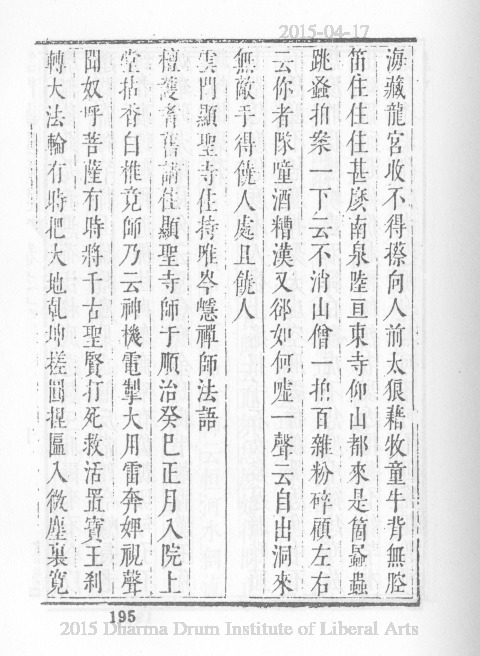 2015-04-17
海藏龍宮收不得搽向人前太狼藉牧童牛背無腔
笛住住住甚麼南泉陸亘東寺仰山都來是箇蝨蟲
跳蚤拍案一下云不消山僧一拍百雜粉碎顧左右
云你者隊噇酒糟漢又郤如何噓一聲云自出洞來
無敵手得饒人處且饒人
雲門顯聖寺住持雎岑𢥠禪師法語
檀護耆舊請住顯聖寺師于順治癸巳正月入院上
堂拈香白椎竟師乃云神機電掣大用雷奔婢視聲
聞奴呼菩薩有時將千古聖賢打死救活置寶王剎
轉大法輪有時把大地乾坤搓圓揑匾入微塵裏寬
195
2015 Dharma Drum Institute of Liberal Arts